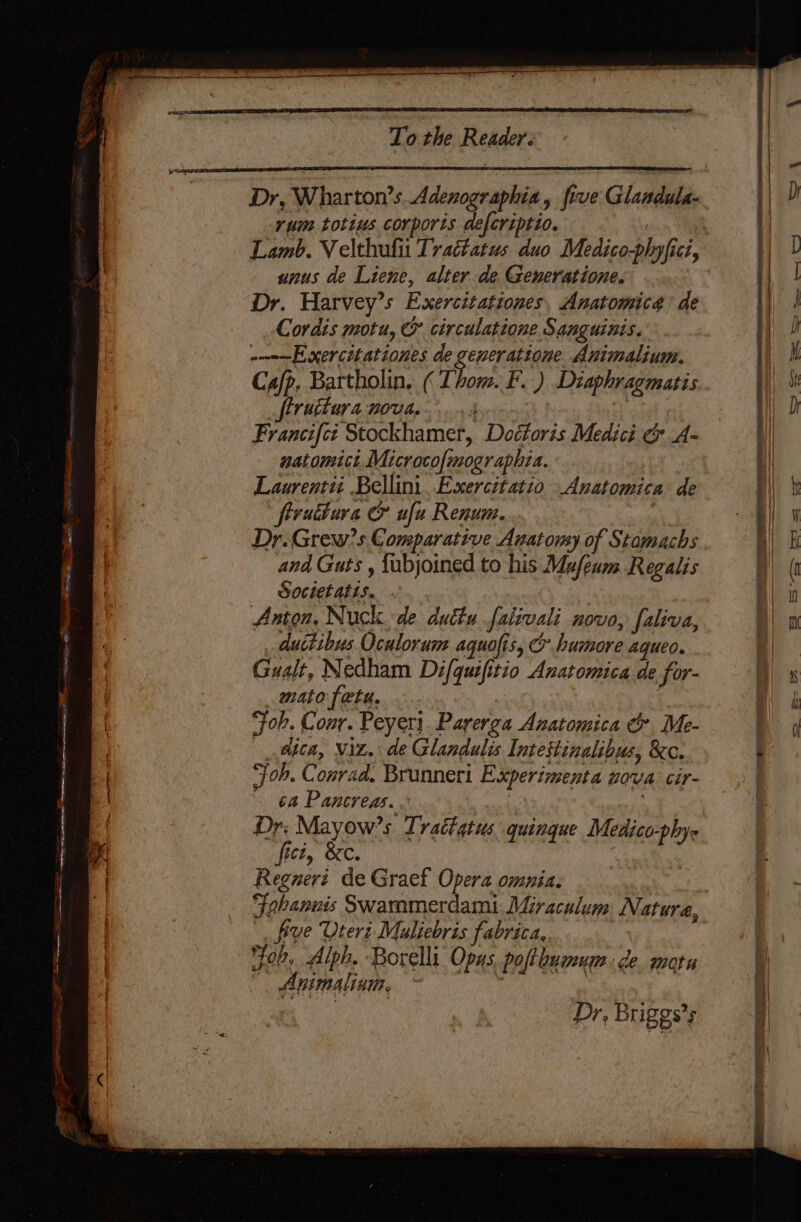 To the Reader.
Dr. Wharton's Adenographia, ſive Glandula-
rum totius corporis deſcriptio.
Lamb. Velthuſii Tractatus duo Medico-phyſici,
unus de Liene, alter de Generatione.
Dr. Harvey's Exercitationes Anatomicæ de
Cordis motu, & circulatione Sanguinis.
----Exercitationes de generatione Animalium.
Caſp. Bartholin. (Thom. F.) Diaphragmatis
ſtructura nova.
Franciſci Stockhamer, Doctoris Medici & A-
natomici Microcoſmographia.
Laurentii Bellini Exercitatio Anatomica de
ſtructura & uſu Renum.
Dr. Grew's Comparative Anatomy of Stomachs
and Guts, ſubjoined to his Muſeum Regalis
Societatis.
Anton. Nuck de ductu ſalivali novo, ſaliva,
ductibus Oculorum aquoſis, & humore aqueo.
Gualt. Nedham Diſquiſitio Anatomica de for-
mato fœtu.
Joh. Conr. Peyeri Parerga Anatomica & Me-
dica, viz. de Glandulis Inteſtinalibus, &c.
Joh. Conrad. Brunneri Experimenta nova cir-
ca Pancreas.
Dr. Mayow's Tractatus quinque Medico-phy-
ſici, &c.
Regneri de Graef Opera omnia.
Johannis Swammerdami Miraculum Naturæ,
ſive Uteri Muliebris fabrica.
Joh. Alph. Borelli Opus poſthumum de motu
Animalium.
Dr. Briggs's